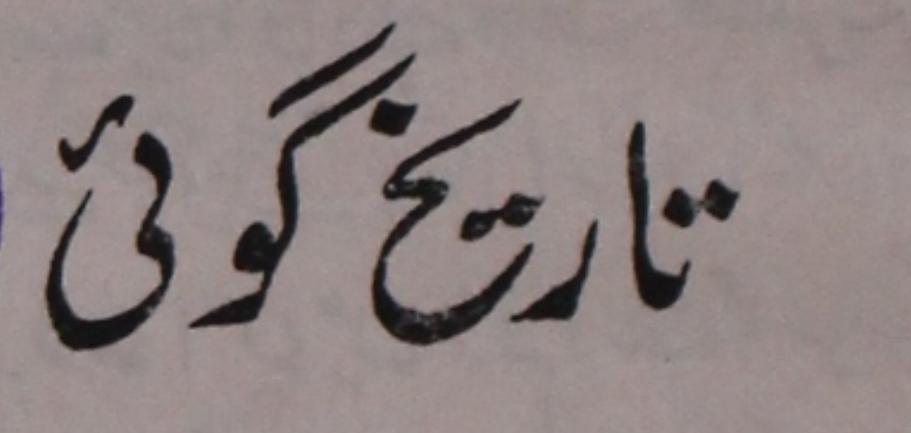 تاریخ گوئی